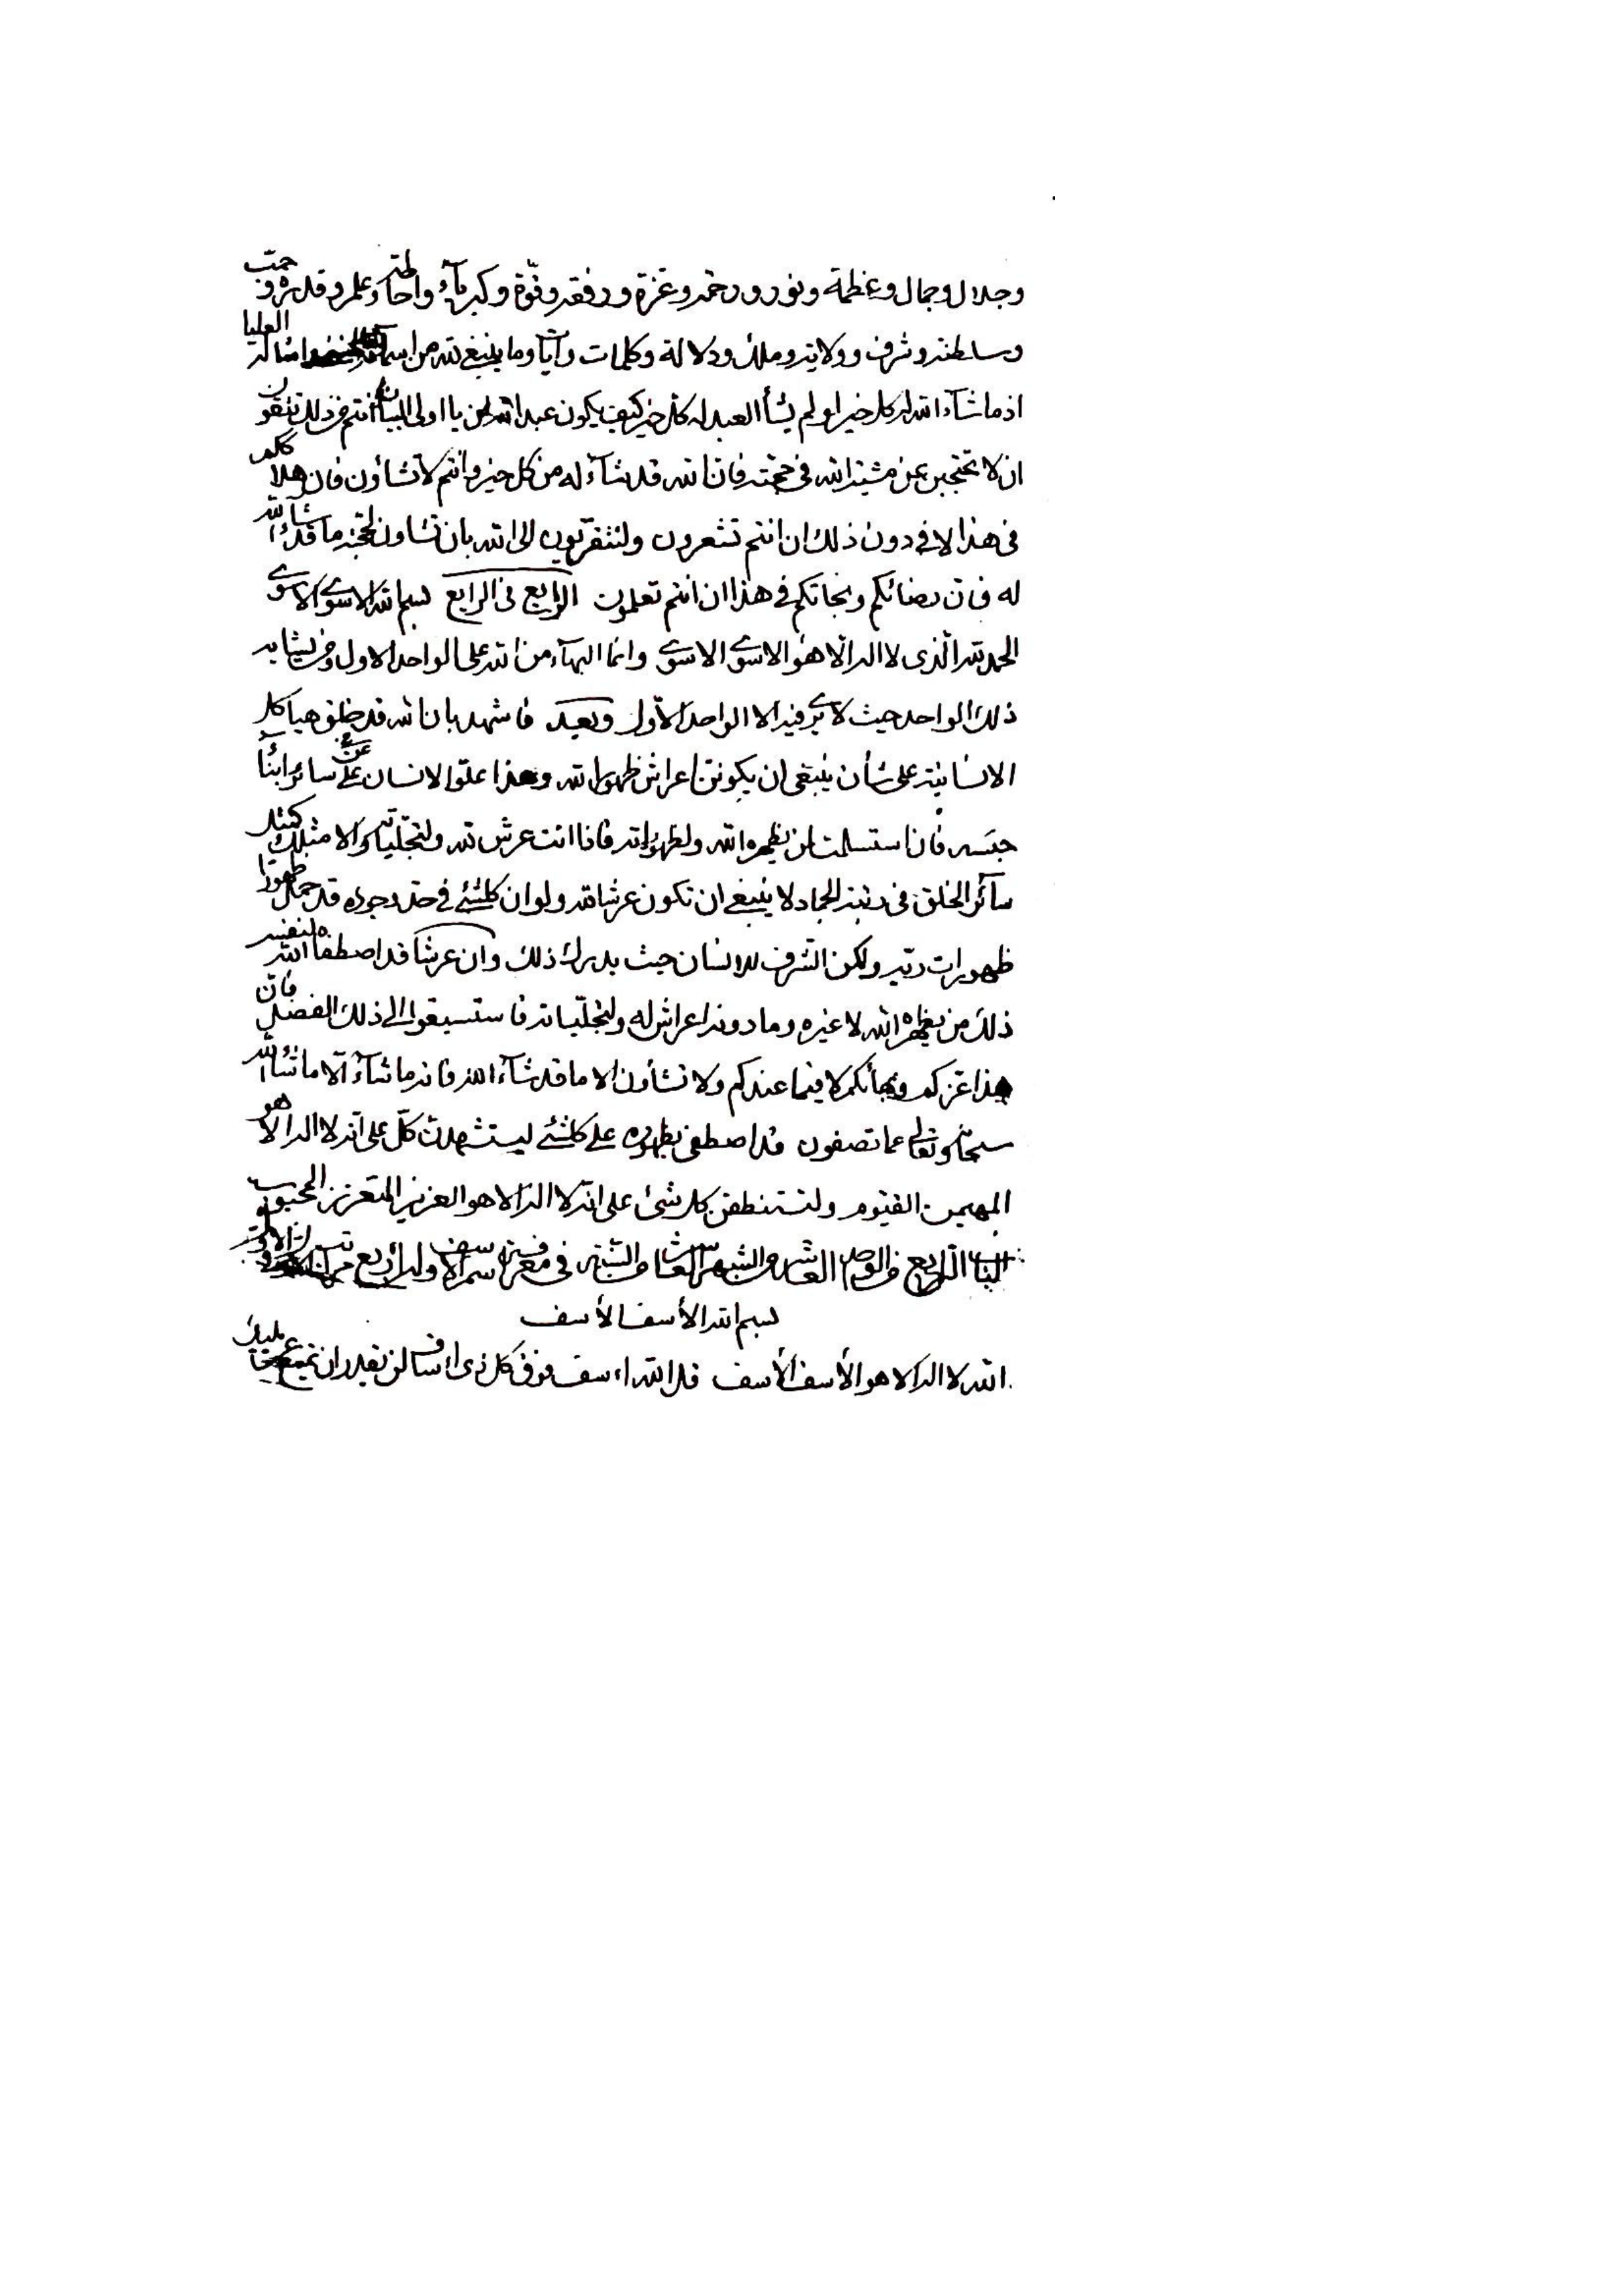 وجلال وجمال وعظمة ونور ورحمة وعزة ورفعة وقوّة وكبرياء واحاطة وعلم وقدرة و
وسلطنة وشرف وولاية وملك ودلالة وكلمات وآيات وما ينبغي لله من اسمائه الحسنى وامثاله العليا
اذ ما شاء الله له كل خير او لم يشأ العبد له كل خير كيف يكون عبد الله لمن يا اولى البيان انتم من ذلك تتقون
ان لا تحتجبن عن مشية الله في حجته فان الله قد شاء له من كل خير وانتم لا تشاؤن فان هلاككم
في هذا لا في دون ذلك ان انتم تشعرون ولتتقربون الى الله بان تشاون لحجته ما قد شاء الله
له فان رضائكم ونجاتكم في هذا ان انتم تعلمون الرابع في الرابع بسم الله الاسوى الاسوى
الحمد لله الذى لا اله الا هو الاسوى الاسوى وانما البهاء من الله على الواحد الاول ومن يشابه
ذلك الواحد حيث لا يرى فيه الا الواحد الاول وبعيد فاشهد بان الله قد خلق هياكل
الانسانية على شأن ينبغى ان يكونن اعراش ظهور الله وهذا علو الانسان عن سائر ابناء
جنسه فان استسلمت لمن يظهره الله ولظهوراته فاذا انت عرش لله ولتجلياته والا مثلك كمثل
سائر الخلق في رتبة الجماد لا ينبغي ان تكون عرشا لله ولو ان كلشئ في حد وجوده قد حمل ظهورا
ظهورات ربه ولكن الشرف للانسان حيث يدرك ذلك وان عرشا قد اصطفاه الله لنفسه
ذلك من يظهره الله لا غيره وما دونه اعراش له ولتجلياته فاستسبقوا الى ذلك الفضل فان
هذا عزكم ونجاتكم لا فيما عندكم ولا تشأون الا ما قد شاء الله فانه ما شاء الا ما شاء الله
سبحانه وتعالى عما تصفون قد اصطفى بظهوره على كلشئ ليستشهدن كل على انه لا اله الا هو
المهيمن القيوم ولتستنطقن كل شئ على انه لا اله الا هو العزيز المتعزز المحبوب
الباب الرابع من الواحد العاشر من الشهر العاشر من السنة في معرفة اسم الاسف وله اربع مراتب الاول في الاول
بسم الله الأسف الأسف
الله لا اله الا هو الأسف الأسف قل الله اءسف فوق كل ذى اءساف لن يقدر ان يمتنع عن مليك